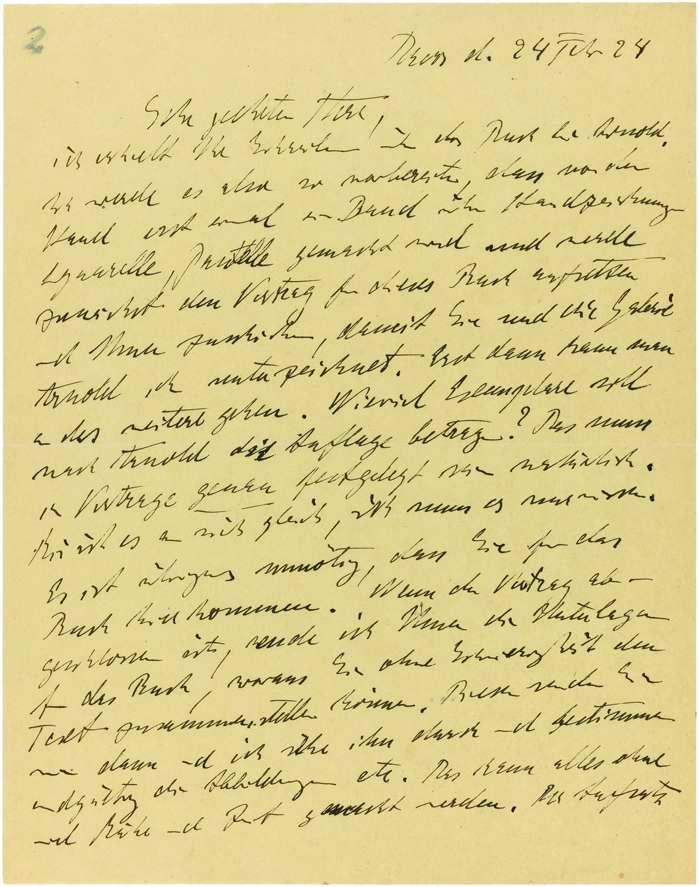 2
Davos d. 24 Febr 24
Sehr geehrter Herr,
ich erhielt Ihr Schreiben über das Buch bei Arnold.
Ich werde es also so vorbereiten, dass von der
Hand erst einmal ein Band über Handzeichnungen
Aquarelle, Pastelle gemacht wird und werde
zunächst den Vertrag für dieses Buch aufsetzen
und Ihnen zuschicken, damit Sie und die Galerie
Arnold ihn unterzeichnet. Erst dann kann man
an das weitere gehen. Wieviel Exemplare soll
nach Arnold die Auflage betragen? Das muss
im Vertrage genau festgelegt sein natürlich.
Mir ist es an sich gleich, ich muss es nur wissen.
Es ist übrigens unnötig, dass Sie für das
Buch herkommen. Wenn der Vertrag ab-
geschlossen ist, sende ich Ihnen die Unterlagen
für das Buch, woraus Sie ohne Schwierigkeit den
Text zusammenstellen können. Diesen senden Sie
mir dann und ich sehe ihn durch und bestimme
endgültig die Abbildungen etc. Das kann alles ohne
viel Mühe und Zeit gemacht werden. Die